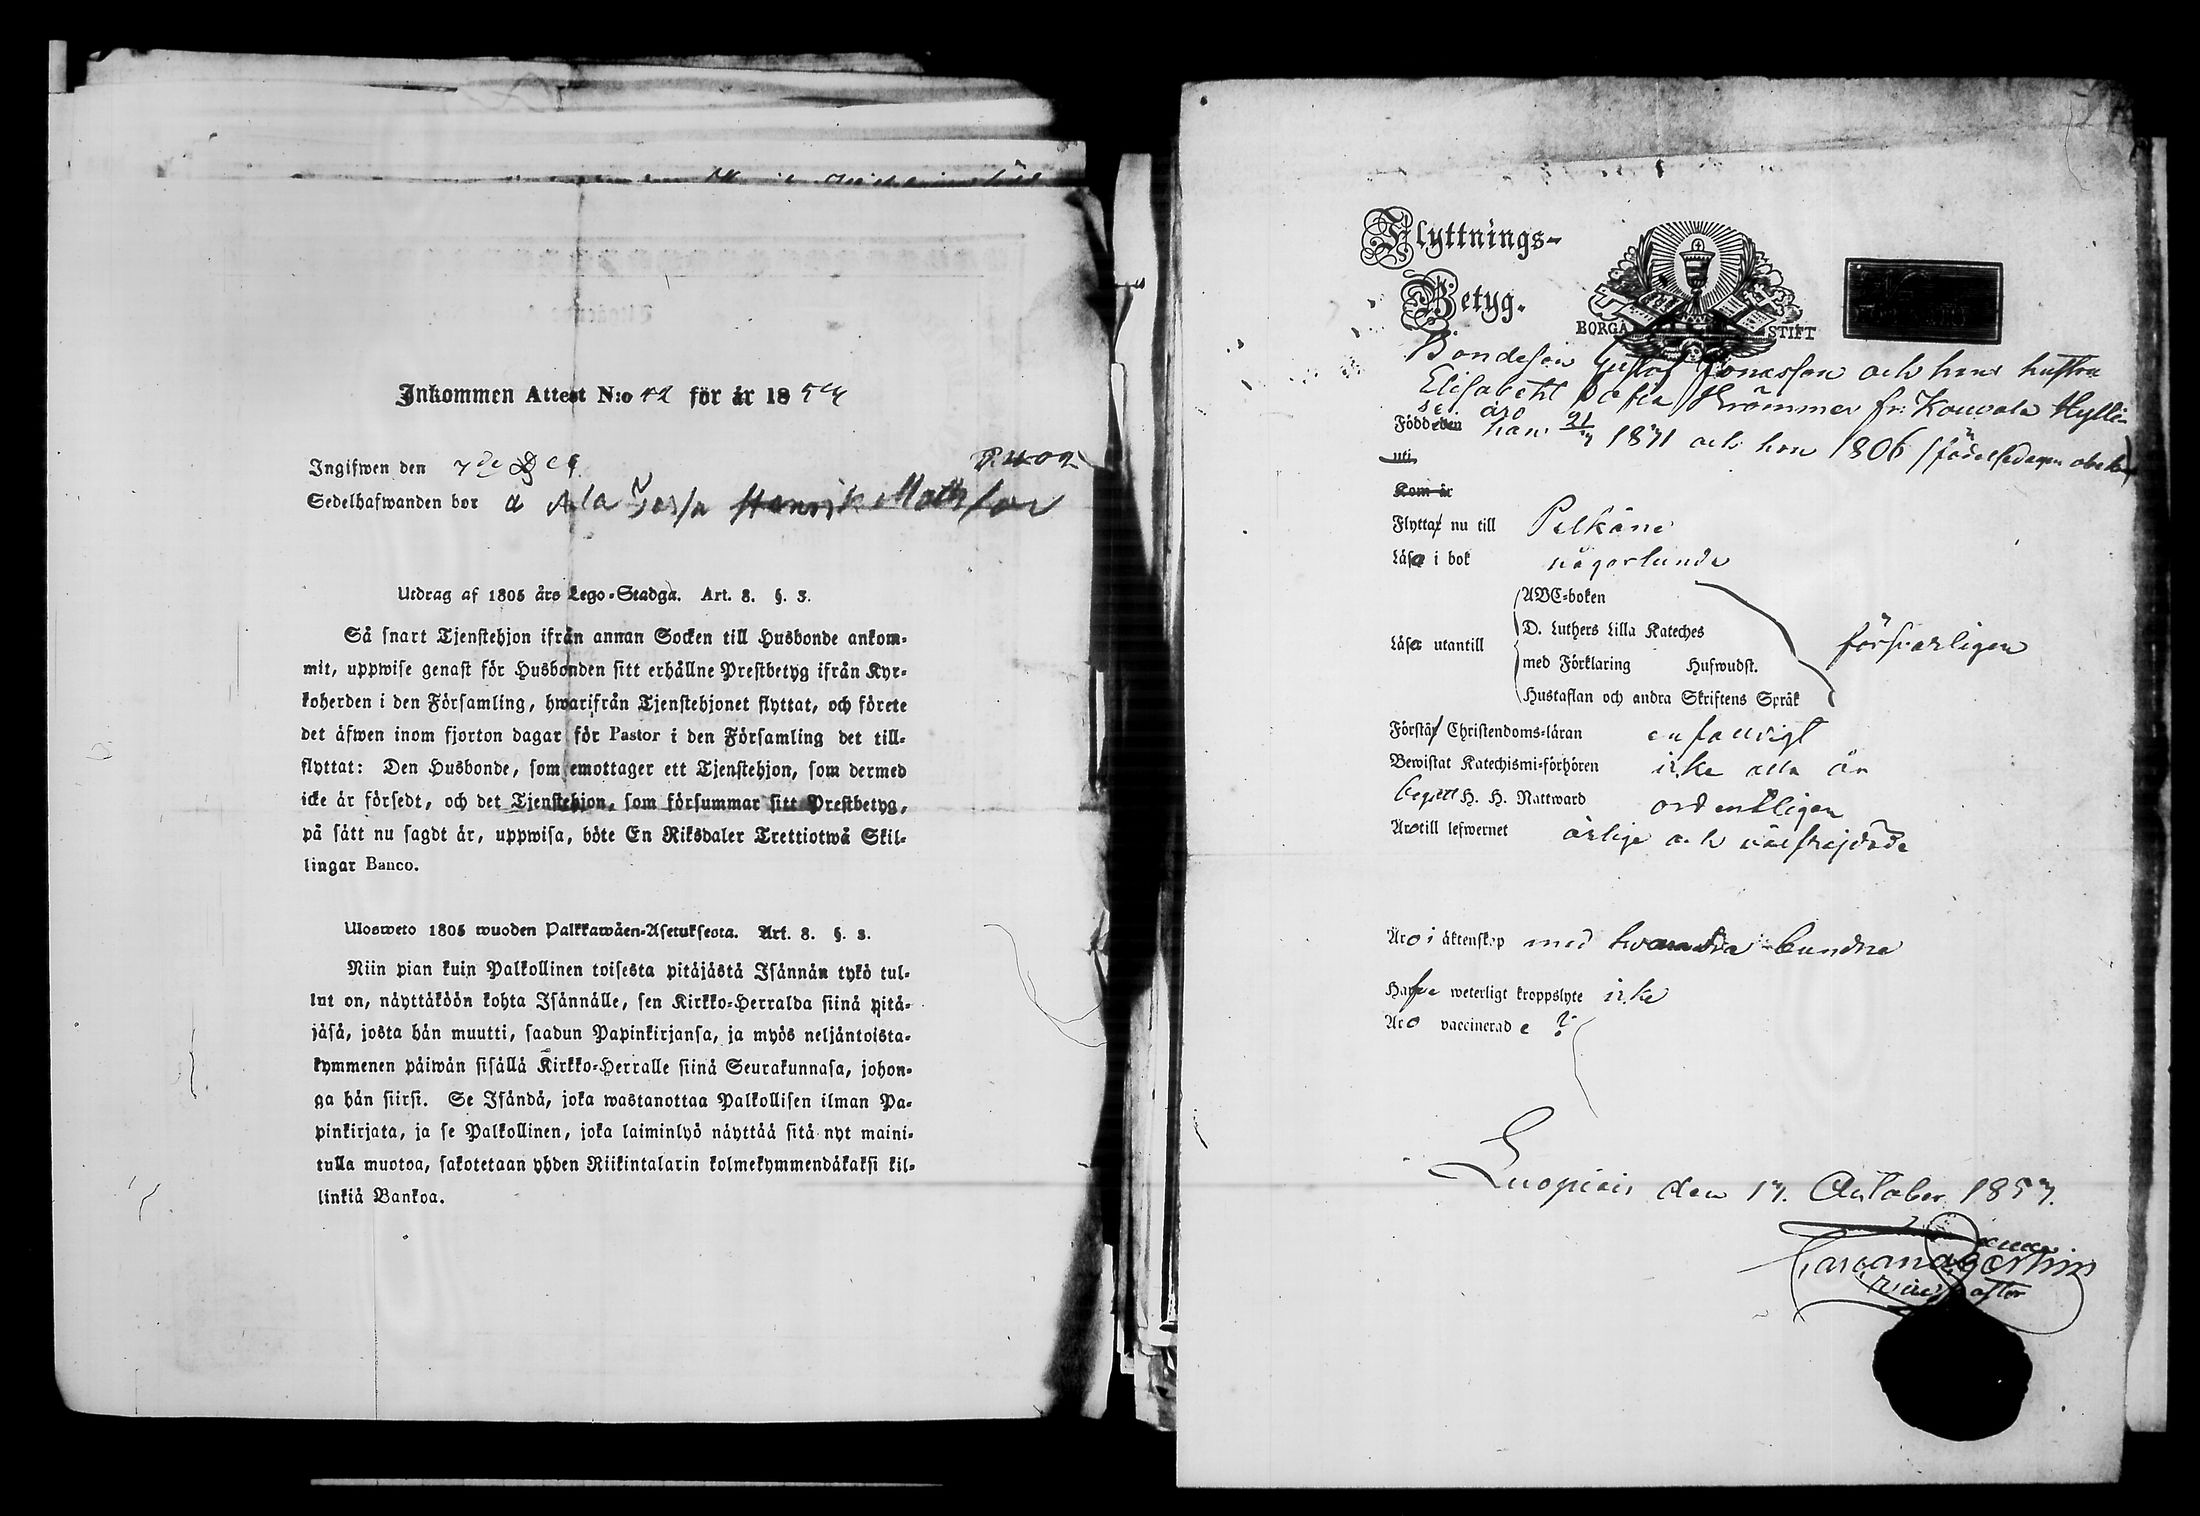 Inkommen Attest N:o 42 för år 1857
Ingifwen den 7de Dec
Sedelhafwanden bor å Ala Henrik Matsson
Utdrag af 1805 års Lego-Stadga. Art. 8. §. 3.
Så snart Tjenstehjon ifrån annan Socken till Husbonde ankom-
mit, uppwise genast för Husbonden sitt erhållne Prestbetyg ifrån Kyr-
koherden i den Församling, hwarifrån Tjenstehjonet flyttat, och förete
det äfwen inom fjorton dagar för Pastor i den Församling det till-
flyttat: Den Husbonde, som emottager ett Tjenstehjon, som dermed
icke är försedt, och det Tjenstehjon, som försummar sitt Prestbetyg,
på sätt nu sagdt är, uppwisa, böte En Riksdaler Trettiotwå Skil-
lingar Banco.
Ulosweto 1805 wuoden Palkkawäen-Asetuksesta. Art. 8. §. 3.
Niin pian kuin Palkollinen toisesta pitäjästä Isännän tykö tul-
lut on, näyttäköön kohta Isännälle, sen Kirkko-Herralda siinä pitä-
jäsä, josta hän muutti, saadun Papinkirjansa, ja myös neljäntoista-
kymmenen päiwän sisällä Kirkko-Herralle siinä Seurakunnasa, johon-
ga hän siirsi. Se Isändä, joka wastanottaa Palkollisen ilman Pa-
pinkirjata, ja se Palkollinen, joka laiminlyö näyttää sitä nyt maini-
tulla muotoa, sakotetaan yhden Riikintalarin kolmekymmendäkaksi kil-
linkiä Bankoa.
Flyttnings-
Betyg.
BORGÅ STIFT
Bondeson Gustaf Jonasson och hans hustru
Elisabeth Krömmer fr: Kouvala
äro
Född den han 21 och hon 1806
uti
Kom år
Flytta nu till Pelkäne
Läsa i bok någorlunda
ABC-boken
D. Luthers Lilla Kateches
Läsa utantill försvarligen
med Förklaring Hufwudst.
Hustaflan och andra Skriftens Språk
Förstå Christendoms-läran enfaldigt
Bewistat Katechismi-förhören icke alla år
begått H. H. Nattward ordentligen
Äro till lefwernet ärlige och välfrejdade
Äro i äktenskap med hvarandra bundne
Hafva weterligt kroppslyte icke
Äro vaccinerade ?
Luopiois den 17. October 1857.